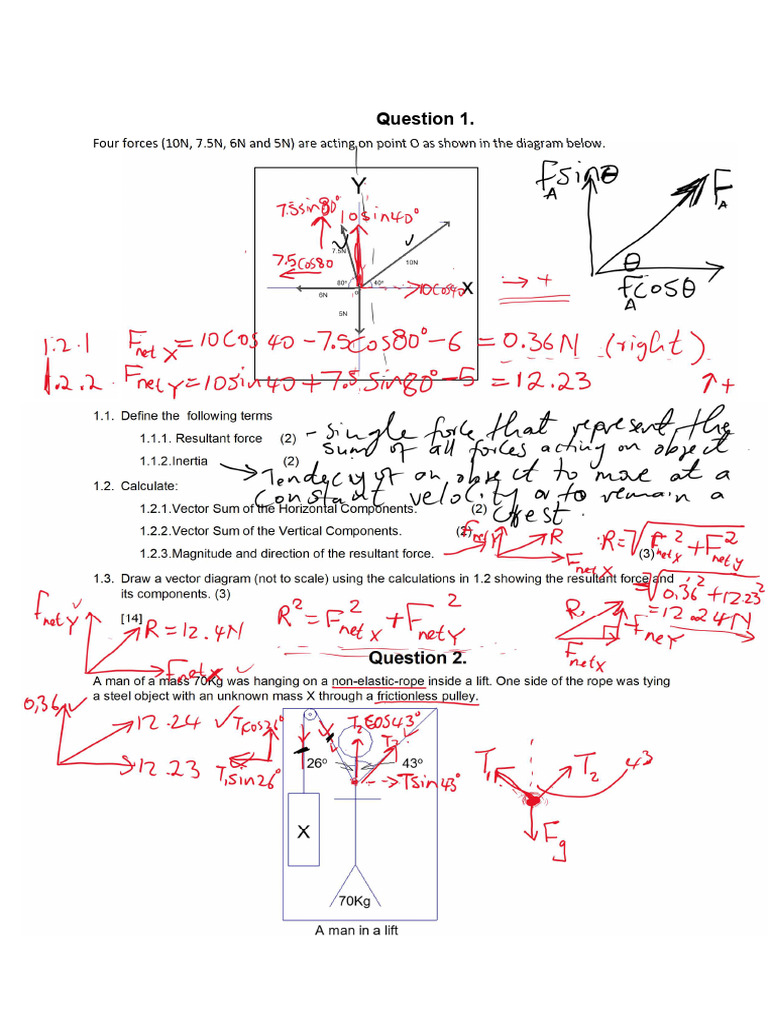 Question 1.
Four forces (10N, 7.5N, 6N and 5N) are acting on point O as shown in the diagram below.
Y
7.5sin80°
10sin40°
7.5N
7.5cos80
10N
80°
X
10cos40
6N
5N
→ +
Fsinθ
A
F
A
θ
Fcosθ
A
1.2.1 Fnet X = 10cos40 - 7.5cos80° - 6 = 0.36N (right)
1.2.2. Fnet Y = 10sin40 + 7.5sin80° - 5 = 12.23 ↑+
1.1. Define the following terms
1.1.1. Resultant force (2) - single force that represent the
sum of all forces acting on object
1.1.2.Inertia (2) → Tendecy of an object to move at a
constant velocity or to remain a
rest.
1.2. Calculate:
1.2.1.Vector Sum of the Horizontal Components. (2)
1.2.2.Vector Sum of the Vertical Components. (2)
1.2.3.Magnitude and direction of the resultant force. (3)
Fnet Y R Fnet X
∴R = √Fnet X² + Fnet Y²
= √0,36² + 12.23²
= 12.24N
1.3. Draw a vector diagram (not to scale) using the calculations in 1.2 showing the resultant force and
its components. (3)
[14]
Fnet Y R = 12.4N Fnet X
R² = Fnet X² + Fnet Y²
R Fnet Y Fnet X
Question 2.
A man of a mass 70Kg was hanging on a non-elastic-rope inside a lift. One side of the rope was tying
a steel object with an unknown mass X through a frictionless pulley.
0,36 12.24 12.23
T₁cos26°
T₁sin26°
T₂cos43°
T₂
26° 43°
Tsin43°
X
70Kg
A man in a lift
T₁ T₂ 43
Fg